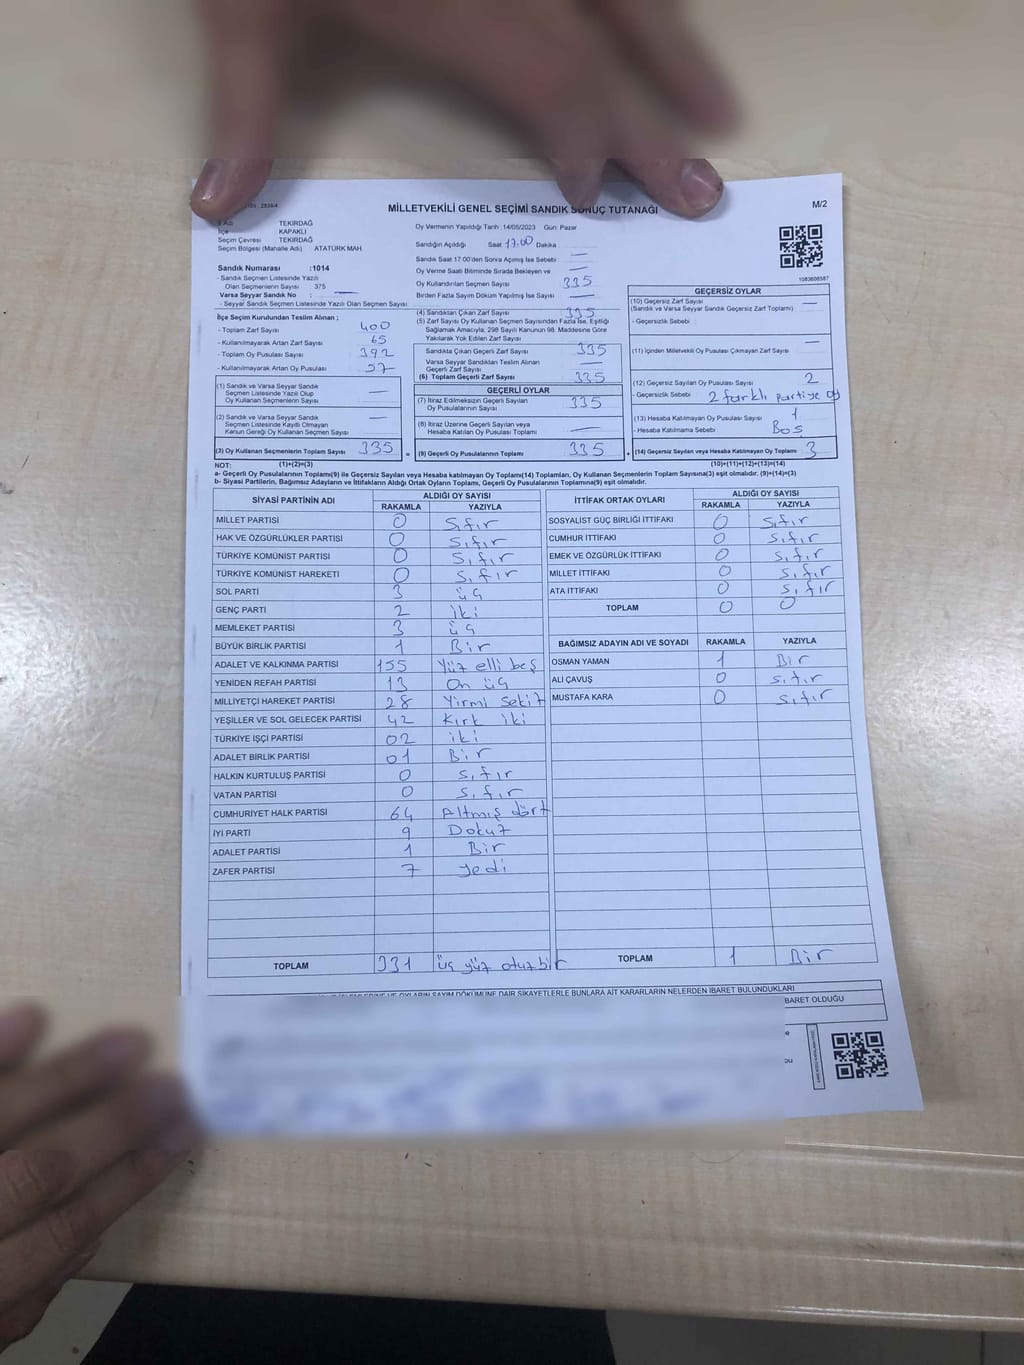 MİLLETVEKİLİ GENEL SEÇİMİ SANDIK SONUÇ TUTANAĞI
M/2
İl Adı TEKİRDAĞ
İlçe KAPAKLI
Seçim Çevresi TEKİRDAĞ
Seçim Bölgesi (Mahalle Adı) ATATÜRK MAH.
Sandık Numarası :1014
- Sandık Seçmen Listesinde Yazılı
Olan Seçmenlerin Sayısı : 375
Varsa Seyyar Sandık No : —
- Seyyar Sandık Seçmen Listesinde Yazılı Olan Seçmen Sayısı:
Oy Vermenin Yapıldığı Tarih :14/05/2023 Gün: Pazar
Sandığın Açıldığı Saat 17.00 Dakika
Sandık Saat 17:00'den Sonra Açımış İse Sebebi : —
Oy Verme Saati Bitiminde Sırada Bekleyen ve —
Oy Kullandırılan Seçmen Sayısı 335
Birden Fazla Sayım Döküm Yapılmış İse Sayısı —
1083608587
İlçe Seçim Kurulundan Teslim Alınan ;
- Toplam Zarf Sayısı 400
- Kullanılmayarak Artan Zarf Sayısı 65
- Toplam Oy Pusulası Sayısı 392
- Kullanılmayarak Artan Oy Pusulası 57
(1) Sandık ve Varsa Seyyar Sandık
Seçmen Listesinde Yazılı Olup —
Oy Kullanan Seçmenlerin Sayısı
(2) Sandık ve Varsa Seyyar Sandık
Seçmen Listesinde Kaydı Olmayan —
Kanun Gereği Oy Kullanan Seçmen Sayısı
(3) Oy Kullanan Seçmenlerin Toplam Sayısı 335
(4) Sandıktan Çıkan Zarf Sayısı 335
(5) Zarf Sayısı Oy Kullanan Seçmen Sayısından Fazla İse, Eşitliği
Sağlamak Amacıyla, 298 Sayılı Kanunun 98. Maddesine Göre
Yakılarak Yok Edilen Zarf Sayısı
Sandıkta Çıkan Geçerli Zarf Sayısı 335
Varsa Seyyar Sandıktan Teslim Alınan
Geçerli Zarf Sayısı
(6) Toplam Geçerli Zarf Sayısı 335
GEÇERLİ OYLAR
(7) İtiraz Edilmeksizin Geçerli Sayılan
Oy Pusulalarının Sayısı 335
(8) İtiraz Üzerine Geçerli Sayılan veya
Hesaba Katılan Oy Pusulası Toplamı —
(9) Geçerli Oy Pusulalarının Toplamı 335
GEÇERSİZ OYLAR
(10) Geçersiz Zarf Sayısı —
(Sandık ve Varsa Seyyar Sandık Geçersiz Zarf Toplamı)
- Geçersizlik Sebebi :
(11) İçinden Milletvekili Oy Pusulası Çıkmayan Zarf Sayısı —
(12) Geçersiz Sayılan Oy Pusulası Sayısı 2
- Geçersizlik Sebebi 2 farklı partiye oy
(13) Hesaba Katılmayan Oy Pusulası Sayısı 1
- Hesaba Katılmama Sebebi Boş
(14) Geçersiz Sayılan veya Hesaba Katılmayan Oy Toplamı 3
NOT: (1)+(2)=(3) (10)+(11)+(12)+(13)=(14)
a- Geçerli Oy Pusulalarının Toplamı(9) ile Geçersiz Sayılan veya Hesaba katılmayan Oy Toplamı(14) Toplamları, Oy Kullanan Seçmenlerin Toplam Sayısına(3) eşit olmalıdır. (9)+(14)=(3)
b- Siyasi Partilerin, Bağımsız Adayların ve İttifakların Aldığı Ortak Oyların Toplamı, Geçerli Oy Pusulalarının Toplamına(9) eşit olmalıdır.
SİYASİ PARTİNİN ADI ALDIĞI OY SAYISI
RAKAMLA YAZIYLA
MİLLET PARTİSİ 0 Sıfır
HAK VE ÖZGÜRLÜKLER PARTİSİ 0 Sıfır
TÜRKİYE KOMÜNİST PARTİSİ 0 Sıfır
TÜRKİYE KOMÜNİST HAREKETİ 0 Sıfır
SOL PARTİ 3 üç
GENÇ PARTİ 2 iki
MEMLEKET PARTİSİ 3 üç
BÜYÜK BİRLİK PARTİSİ 1 Bir
ADALET VE KALKINMA PARTİSİ 155 Yüz elli beş
YENİDEN REFAH PARTİSİ 13 On üç
MİLLİYETÇİ HAREKET PARTİSİ 28 Yirmi Sekiz
YEŞİLLER VE SOL GELECEK PARTİSİ 42 Kırk iki
TÜRKİYE İŞÇİ PARTİSİ 02 iki
ADALET BİRLİK PARTİSİ 01 Bir
HALKIN KURTULUŞ PARTİSİ 0 sıfır
VATAN PARTİSİ 0 sıfır
CUMHURİYET HALK PARTİSİ 64 Altmış dört
İYİ PARTİ 9 Dokuz
ADALET PARTİSİ 1 Bir
ZAFER PARTİSİ 7 yedi
TOPLAM 331 üç yüz otuz bir
İTTİFAK ORTAK OYLARI ALDIĞI OY SAYISI
RAKAMLA YAZIYLA
SOSYALİST GÜÇ BİRLİĞİ İTTİFAKI 0 Sıfır
CUMHUR İTTİFAKI 0 Sıfır
EMEK VE ÖZGÜRLÜK İTTİFAKI 0 Sıfır
MİLLET İTTİFAKI 0 Sıfır
ATA İTTİFAKI 0 Sıfır
TOPLAM 0 0
BAĞIMSIZ ADAYIN ADI VE SOYADI RAKAMLA YAZIYLA
OSMAN YAMAN 1 Bir
ALİ ÇAVUŞ 0 sıfır
MUSTAFA KARA 0 sıfır
TOPLAM 1 Bir
OYLARIN SAYIM DÖKÜMÜNE DAİR ŞİKAYETLERLE BUNLARA AİT KARARLARIN NELERDEN İBARET BULUNDUKLARI
BARET OLDUĞU